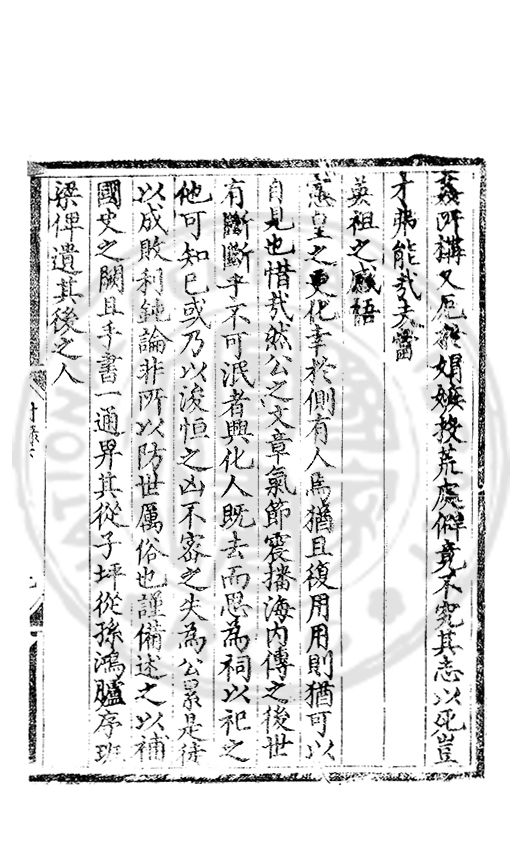 姦所講又厄於娼嫉投荒處俾竟不究其志以死豈
才弗能哉夫當
英祖之感悟
憲皇之更化幸於側有人焉猶且復用用則猶可以
自見也惜哉然公之文章氣節震播海內傳之後世
有斷斷乎不可泯者興化人既去而思為祠以祀之
他可知已或乃以浚恒之凶不密之失為公累是徒
以成敗利鈍論非所以防世厲俗也謹備述之以補
國史之闕且手書一通畀其從子坪從孫鴻臚序班
梁俾遺其後之人
附錄